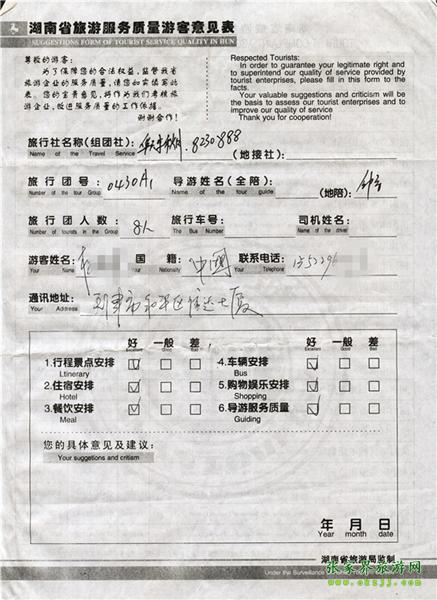 湖南省旅游服务质量游客意见表
SUGGESTIONS FORM OF TOURIST SERVICE QUALITY IN HUN
尊敬的游客:
为了保障您的合法权益,监督我省
旅游企业的服务质量,请您如实填写此
表。您的宝贵意见,将作为我们考核旅
游企业,改进服务质量的工作依据。
谢谢合作!
Respected Tourists:
In order to guarantee your legitimate right and
to superintend our quality of service provided by
tourist enterprises, please fill in this form to the
facts.
Your valuable suggestions and criticism will
be the basis to assess our tourist enterprises and to
improve our quality of service
Thank you for cooperation!
旅行社名称(组团社): 8230888 (地接社):
Name of the Travel Service
旅行团号: 0430A1 导游姓名(全陪): (地陪):
Number of the tour Group Name of the tour guide
旅行团人数: 8人 旅行车号: 司机姓名:
Number of tourists in the Group The Bus Number Name of the driver
游客姓名: 国籍: 中国 联系电话:
Your Name Your Nationality Your Telephone
通讯地址: 天津市和平区 大厦
Your Address
好 一般 差 好 一般 差
Excellent Good Bad Excellent Good Bad
1.行程景点安排 4.车辆安排
Ltinerary Bus
2.住宿安排 5.购物娱乐安排
Hotel Shopping
3.餐饮安排 6.导游服务质量
Meal Guiding
您的具体意见及建议:
Your suggetions and critism
年 月 日
Year month Date
湖南省旅游局监制
Under the Surveillance
张家界旅游网
www.okzjj.com